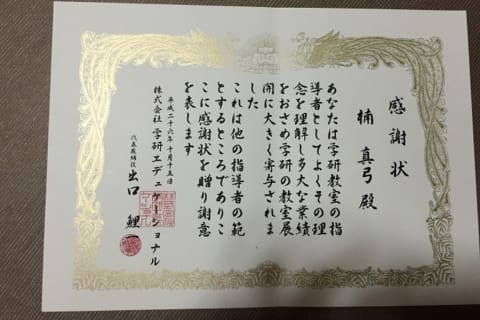 感謝状
楠 真弓 殿
あなたは学研教室の指
導者としてよくその理
念を理解し多大な業績
をおさめ学研の教室展
開に大きく寄与されま
した
これは他の指導者の範
とするところでありこ
こに感謝状を贈り謝意
を表します
平成二十六年十月十五日
株式会社 学研エデュケーショナル
代表取締役 出口 鯉一